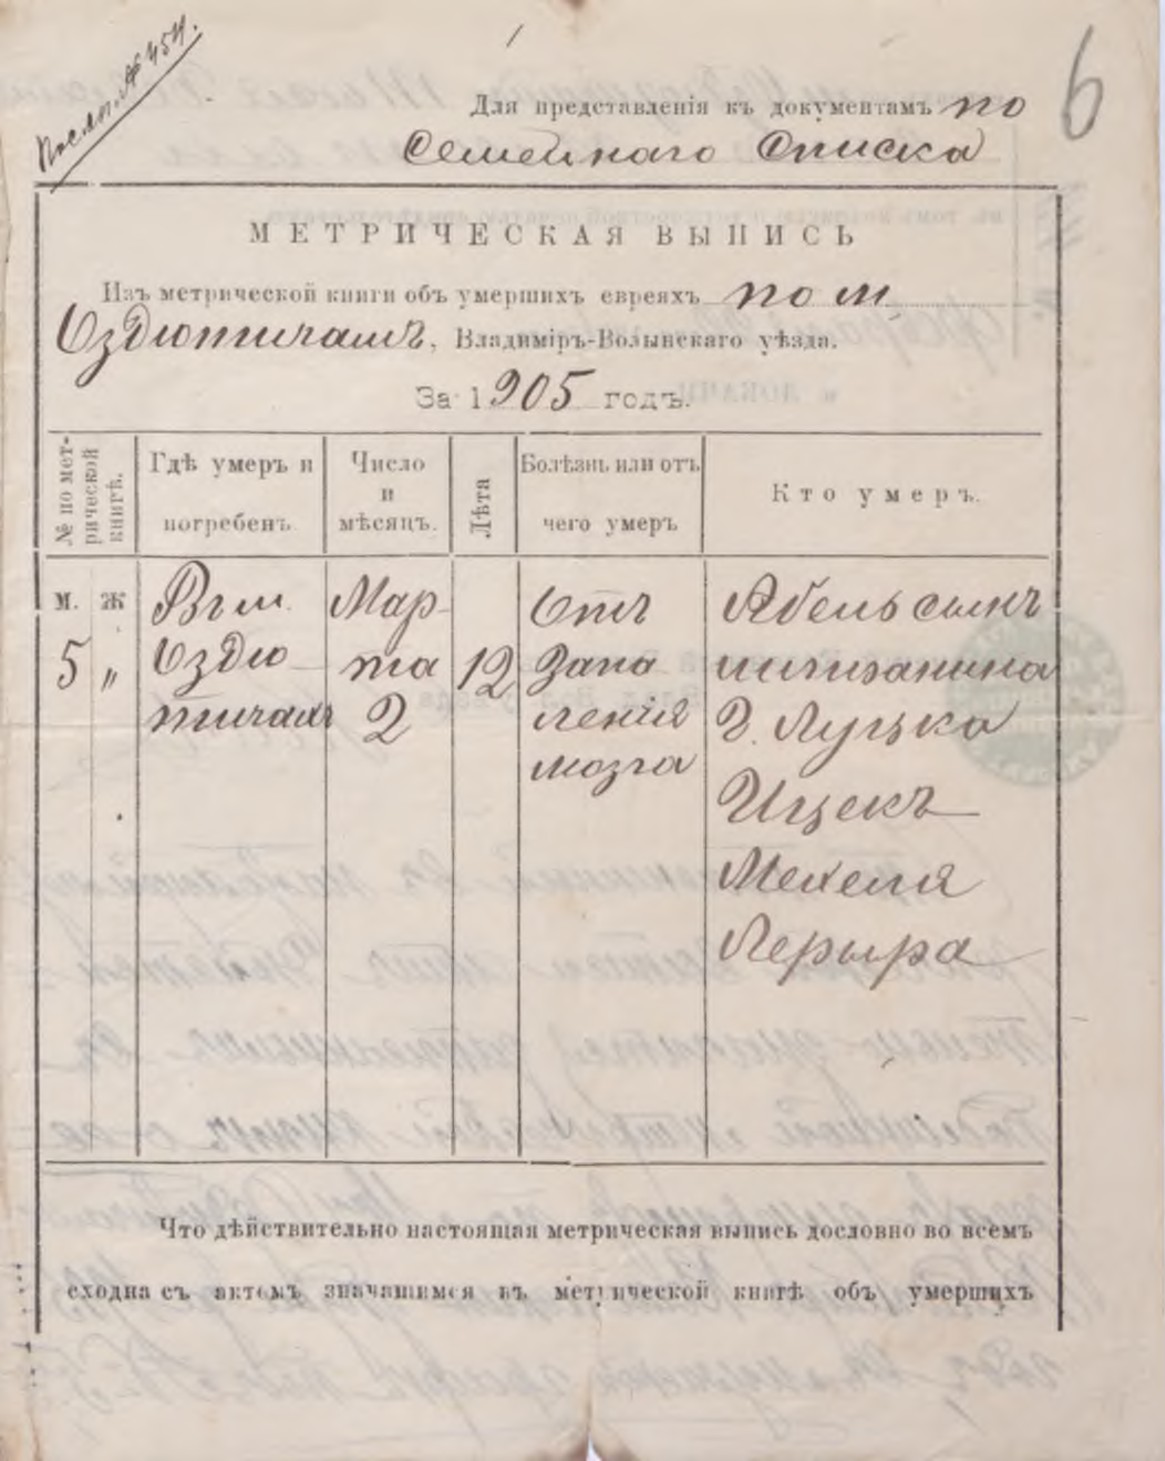 Послѣд. № 454.
6
Для представленія къ документамъ по
Семейнаго Списка
МЕТРИЧЕСКАЯ ВЫПИСЬ
Изъ метрической книги объ умершихъ евреяхъ по м.
Оздютичамъ, Владиміръ-Волынскаго уѣзда.
За 1905 годъ.
№ по метрической книгѣ.
Гдѣ умеръ и погребенъ
Число и мѣсяцъ.
Лѣта
Болѣзнь или отъ чего умеръ
Кто умеръ.
м. ж
5 „
Въ м.
Оздю
тичахъ
Мар-
та
2
12
Отъ
Вапа
ленія
мозга
Абель сынъ
мѣщанина
г. Луцька
Ицекъ
Мехеля
Лерыра
Что дѣйствительно настоящая метрическая выпись дословно во всемъ
сходна съ актомъ значащимся въ метрической книгѣ объ умершихъ